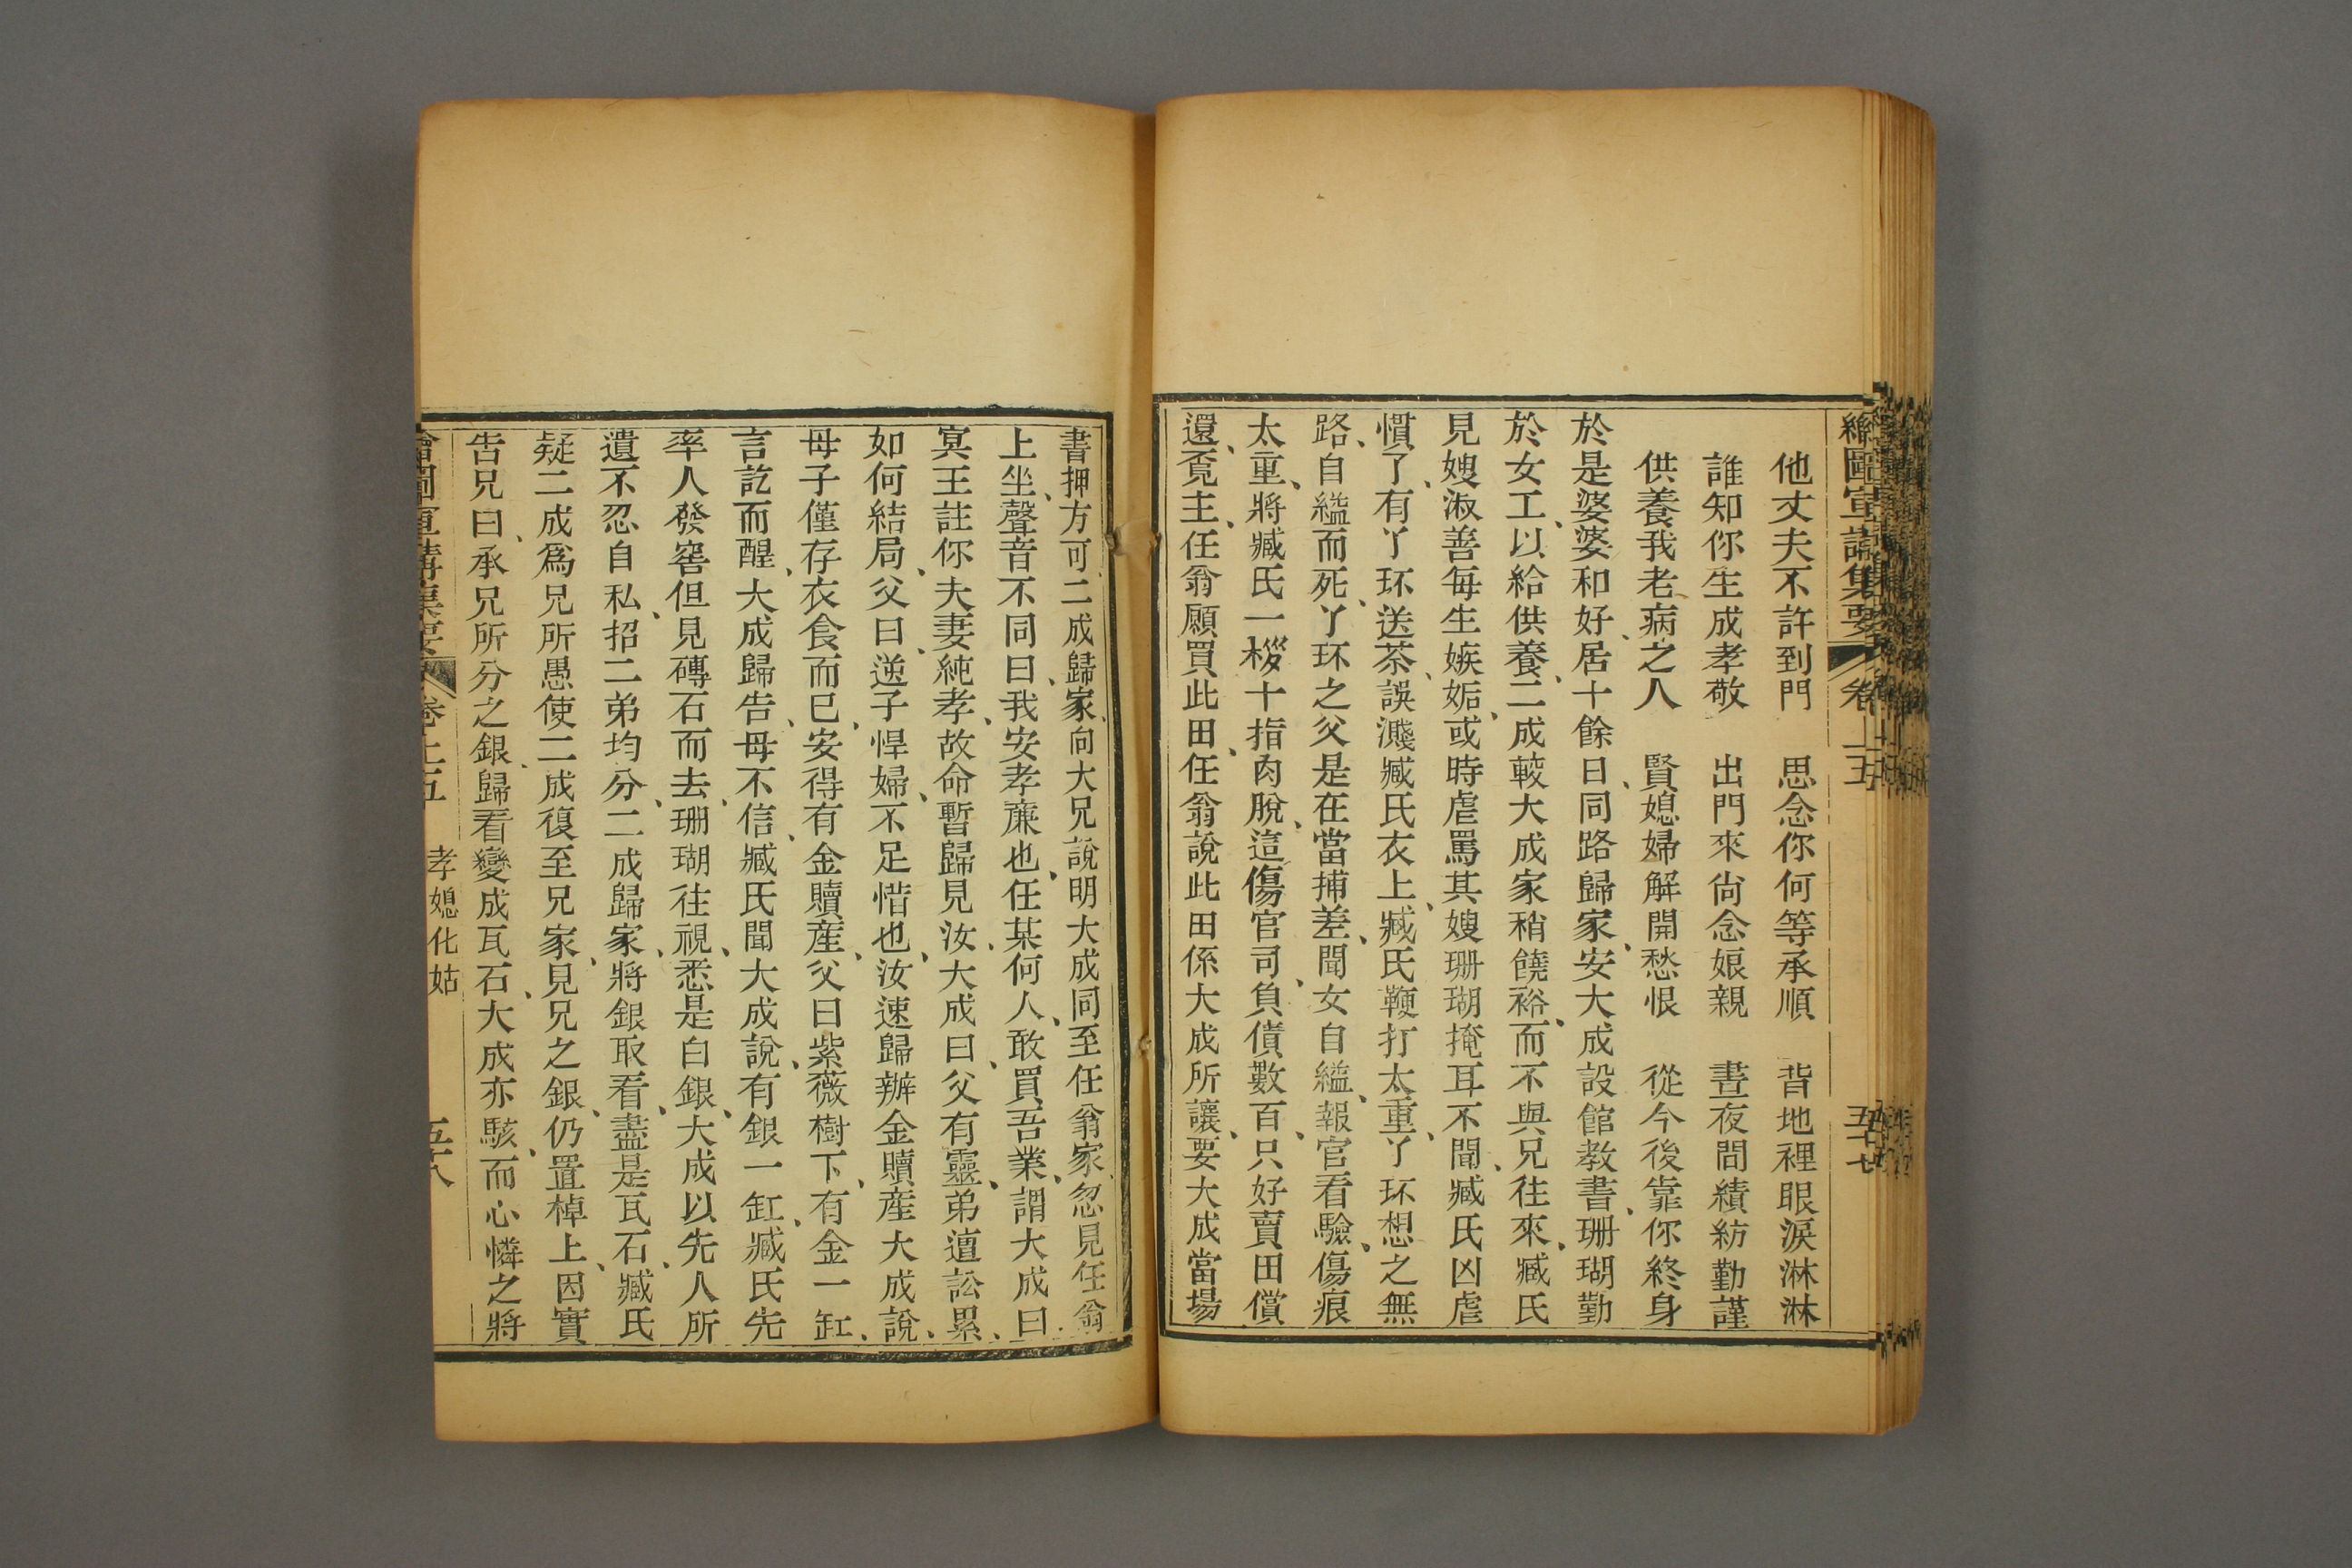 繪圖宣講集要 卷 五 五十七
他丈夫不許到門 思念你何等承順 背地裡眼淚淋淋
誰知你生成孝敬 出門來尙念娘親 晝夜間績紡勤謹
供養我老病之人 賢媳婦解開愁恨 從今後靠你終身
於是婆婆和好、居十餘日、同路歸家、安大成設館教書、珊瑚勤
於女工、以給供養、二成較大成家稍饒裕、而不與兄往來、臧氏
見嫂淑善每生嫉妬、或時虐罵其嫂珊瑚掩耳不聞、臧氏凶虐
慣了、有丫环送茶、誤濺臧氏衣上、臧氏鞭打太重、丫环想之無
路、自縊而死、丫环之父是在當捕差、聞女自縊、報官看驗、傷痕
太重、將臧氏一桚十指肉脫、這傷官司、負債數百、只好賣田償
還、覔主、任翁願買此田、任翁說此田係大成所讓、要大成當場
書押方可、二成歸家、向大兄說明大成同至任翁家、忽見任翁
上坐、聲音不同曰、我安孝廉也、任某何人、敢買吾業、謂大成曰、
冥王註你夫妻純孝、故命暫歸見汝、大成曰、父有靈、弟遭訟累、
如何結局、父曰、逆子悍婦、不足惜也、汝速歸辦金贖產大成說、
母子僅存衣食而已、安得有金贖產、父曰紫薇樹下、有金一缸、
言訖而醒、大成歸告、母不信、臧氏聞大成說、有銀一缸、臧氏先
率人發窖但見磚石而去、珊瑚往視、悉是白銀、大成以先人所
遺不忍自私、招二弟均分、二成歸家、將銀取看、盡是瓦石、臧氏
疑二成爲兄所愚使二成復至兄家、見兄之銀、仍置棹上、因實
告兄曰、承兄所分之銀、歸看變成瓦石、大成亦駭、而心憐之將
繪圖宣講集要 卷之五 孝媳化姑 五十八